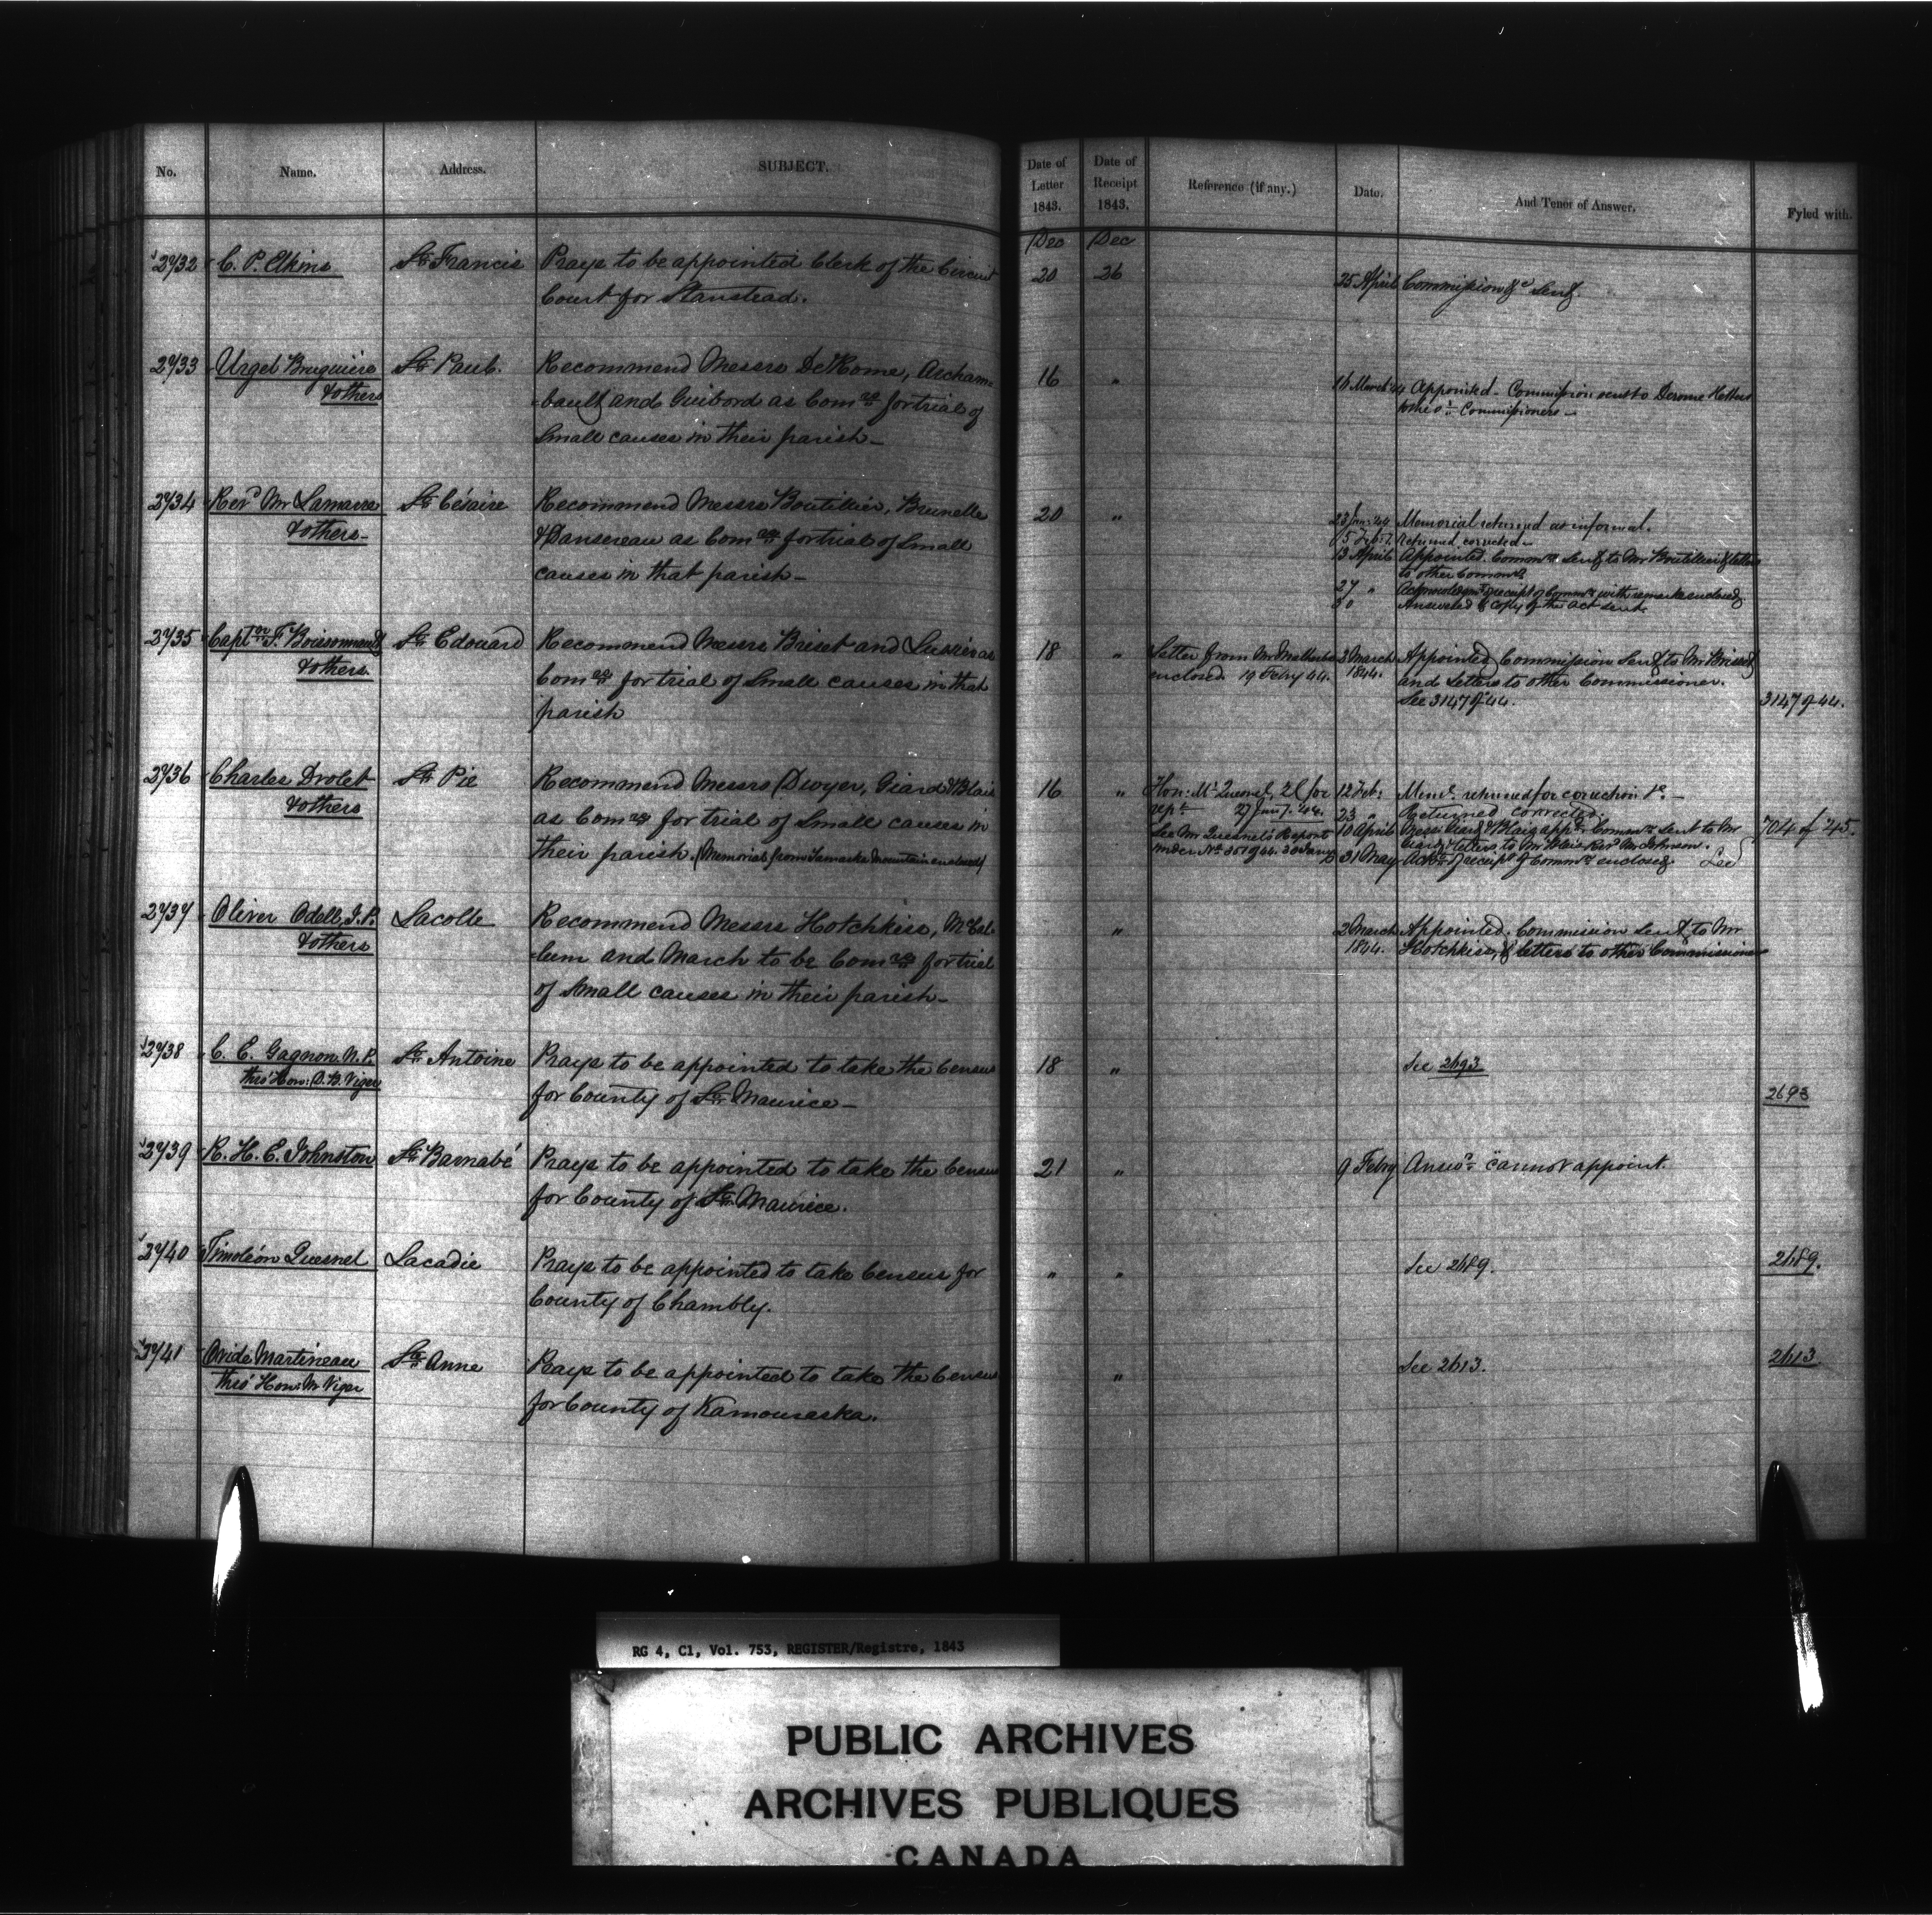 No. Name. Address. SUBJECT. Date of Letter 1843. Date of Receipt 1843. Reference (if any.) Date. And Tenor of Answer. Fyled with.
Dec Dec
2732 C. P. Elkins St Francis Prays to be appointed Clerk of the Circuit 20 26 25 April Commission &c sent.
Court for Stanstead.
2733 Urgel Bruguière St Paul. Recommend Messrs DeRome, Archam= 16 " 16 March 44 Appointed - Commission sent to Derome & letters
& others =bault and Guibord as Comrs for trial of to the or Commissioners -
Small causes in their parish -
2734 Revd Mr Lamarre St Césaire Recommend Messrs Boutillier, Brunelle 20 " 23 Jany 44 Memorial returned as informal.
& others - & Dansereau as Comrs for trial of Small 15 Feby Returned corrected -
causes in that parish - 13 April Appointed. Commn sent to Mr Boutillier & letters
to other Commrs
27 " Acknowledgmt receipt of Commn with remarks enclosed
30 Answered & copy of the act sent.
2735 Captn F. Boissonnault St Edouard Recommend Messrs Briset and Lussier as 18 " Letter from Mr Malherbe 2 March Appointed, Commission sent to Mr Brisset
& others. Comrs for trial of Small causes in that enclosed 19 Febry 44. 1844. and letters to other Commissioner.
parish See 3147 of 44. 3147 of 44.
2736 Charles Drolet St Pie Recommend Messrs Dwyer, Giard & Blais 16 " Hon: Mr Quesnel, Q C for 12 Feb: Meml. returned for correction &c. -
& others as Comrs for trial of Small causes in rept 27 Jany. 44. 23 " Returned corrected
their parish. (Memorial from Yamaska Mountain enclosed) See Mr Quesnel's Report 10 April Messrs Giard & Blais appd. Commn sent to Mr 704 of 45.
under No 351 of 44. 30 Jany Giard & letters to Mr Blais & Revd Mr Johnson.
31 May Ackt of receipt of Commn enclosed. See
2737 Oliver Odell, J. P. Lacolle Recommend Messrs Hotchkiss, McCal= " 2 March Appointed. Commission sent to Mr
& others =lum and March to be Comrs for trial 1844. Hotchkiss, & letters to other Commissioners
of Small causes in their parish -
2738 C. E. Gagnon N. P. St Antoine Prays to be appointed to take the Census 18 " See 2693
thro' Hon: D. B. Viger for County of St Maurice - 2693
2739 R. H. E. Johnston St Barnabé Prays to be appointed to take the Census 21 " 9 Febry Answd. cannot appoint.
for County of St Maurice.
2740 Timoléon Quesnel Lacadie Prays to be appointed to take Census for " " See 2689. 2689.
County of Chambly.
2741 Ovide Martineau Ste Anne Prays to be appointed to take the Census " See 2613. 2613
thro' Hon: Mr Viger for County of Kamouraska.
RG 4, C1, Vol. 753, REGISTER/Registre, 1843
PUBLIC ARCHIVES
ARCHIVES PUBLIQUES
CANADA